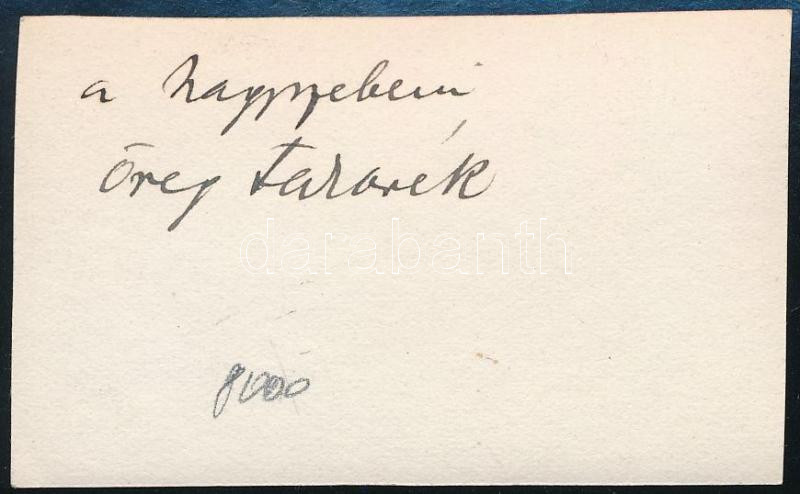 a nagyszebeni
öreg
darabanth
8000